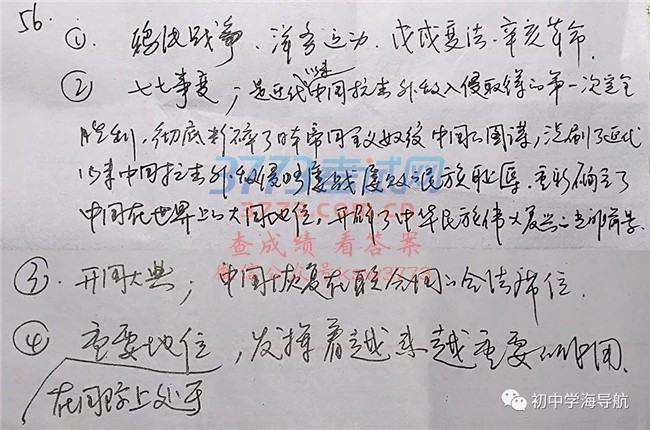 56.
① 鸦片战争、洋务运动、戊戌变法、辛亥革命.
② 七七事变；是近代以来中国抗击外敌入侵取得的第一次完全
胜利，彻底粉碎了日本帝国主义奴役中国的图谋，洗刷了近代
以来中国抗击外敌侵略屡战屡败的民族耻辱.重新确立了
中国在世界上的大国地位，开辟了中华民族伟大复兴的光明前景.
③. 开国大典；中国恢复在联合国的合法席位.
④ 重要地位，发挥着越来越重要的作用.
在国际上处于
3773考试网
3773.com.cn
查成绩 看答案
初中学海导航